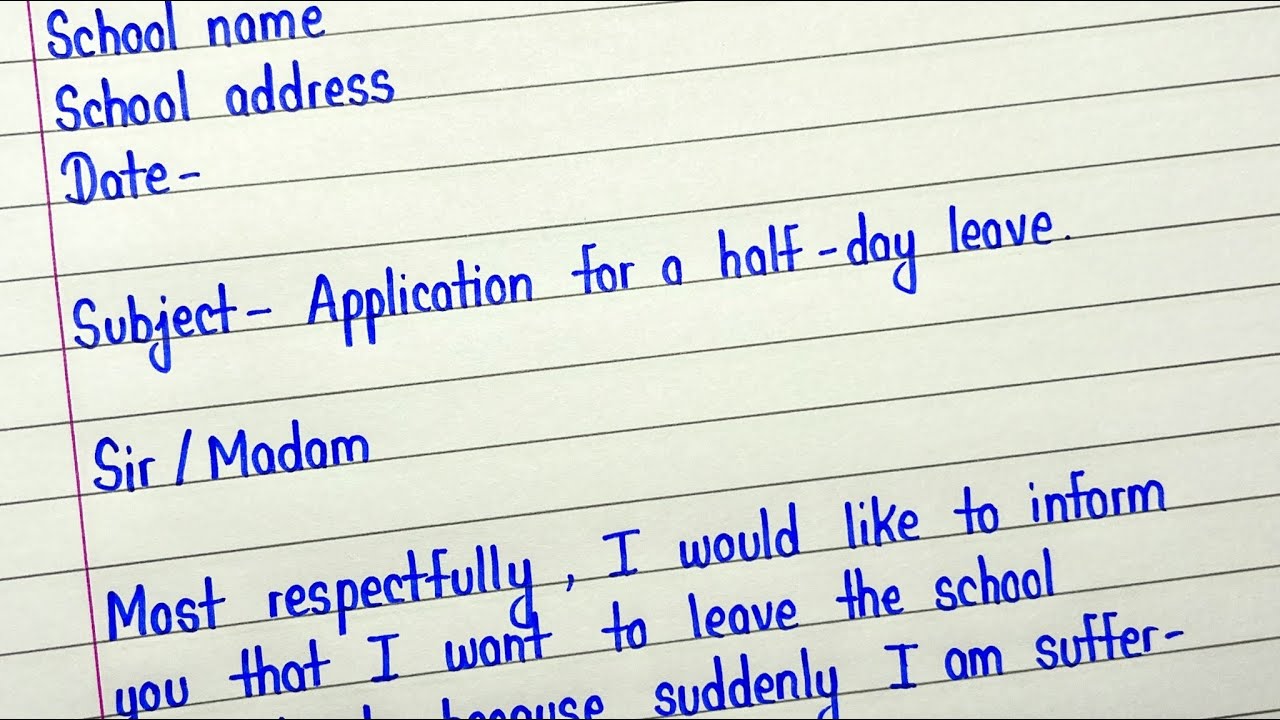 School name
School address
Date-
Subject- Application for a half-day leave.
Sir / Madam
Most respectfully, I would like to inform
you that I want to leave the school
because suddenly I am suffer-